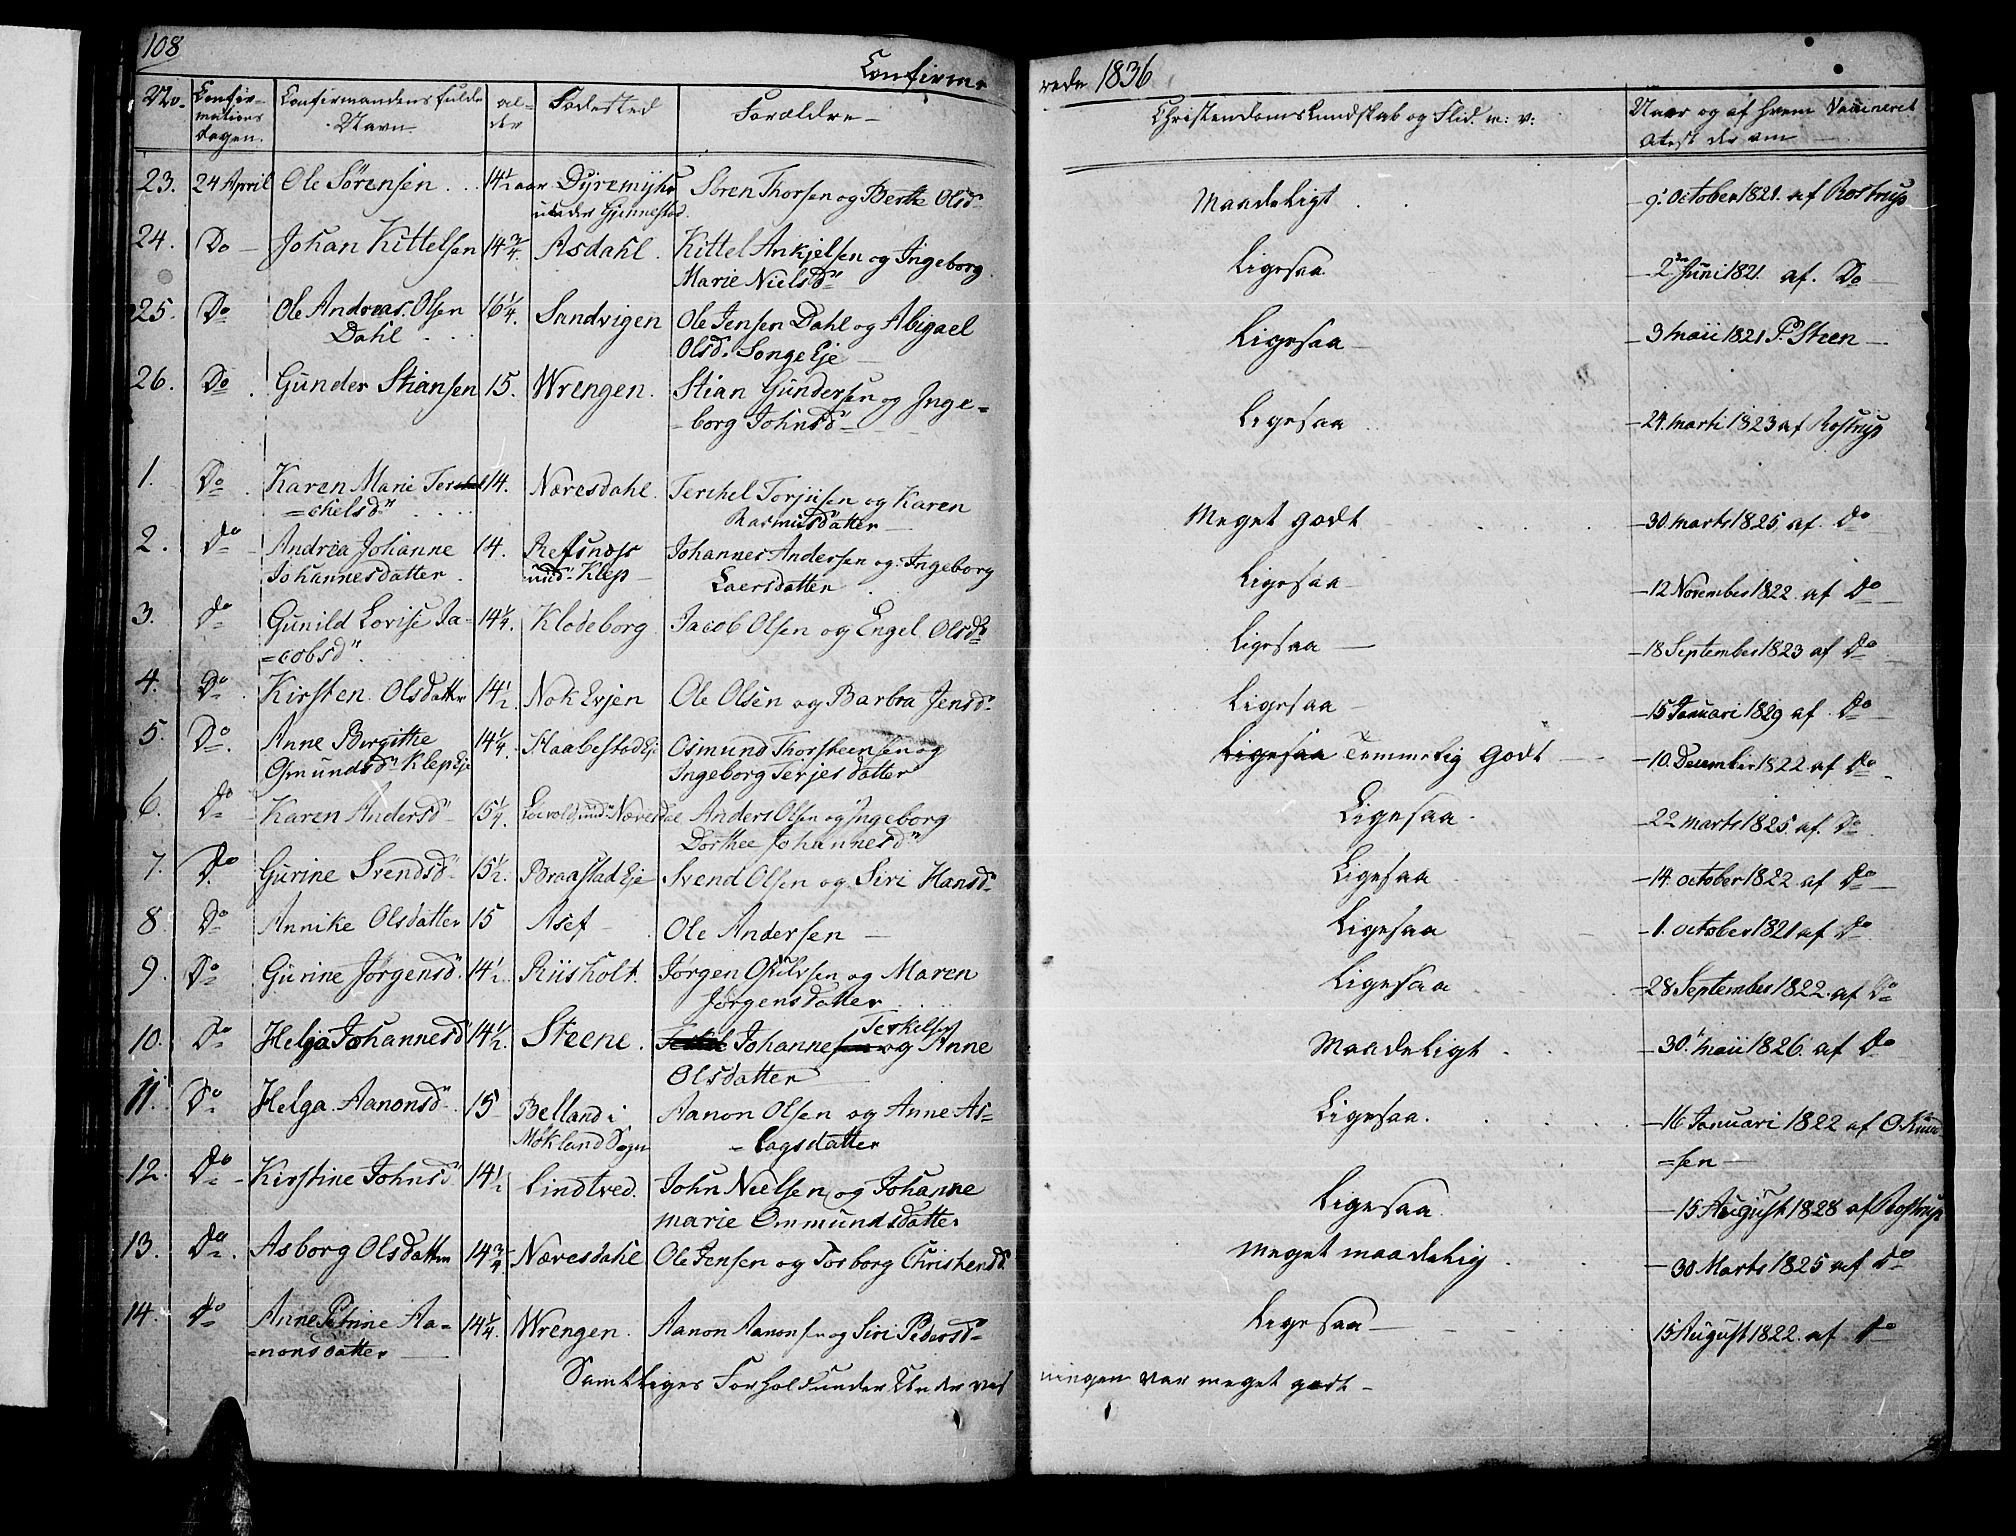 108
Confirme
rede 1836
No. Confir- Confirmandens fulde al- Fødested Forældre Christendoms Kundskab og Flid. m: v: Naar og af hvem Vaccineret
mations Navn der Atest der om
dagen.
23. 24 April Ole Sørensen 14½ aar Dyremyhr Søren Thorsen og Berthe Olsd. Maadeligt 9 October 1821. af Rostrup
under Gjennestad
24. Do Johan Kittelsen 14¾ Asdahl Kittel Ankjelsen og Ingeborg Ligesaa 2 Juni 1821. af. Do
Marie Nielsd
25. Do Ole Andreas. Olsen 16¼. Sandvigen Ole Jensen Dahl og Abigael Ligesaa 3 Maii 1821 P. Steen
Dahl Olsd. Songe Eje
26. Do Gunder Stiansen 15. Wrengen. Stian Gundersen og Inge= Ligesaa 24. Marti 1823 af Rostrup
borg Johnsd
1. Do Karen Marie Ter 14. Næresdahl. Terchel Torjusen og Karen Meget godt 30 Marts 1825 af. Do
=chelsd Rasmusdatter
2. Do Andrea Johanne 14. Refsnæs Johannes Andersen og Ingeborg Ligesaa 12 November 1822. af Do
Johannesdatter und. Klep Laersdatter
3. Do Gunild Lovise Ja- 14¼. Klodeborg Jacob Olsen og Engel Olsd Ligesaa 18 September 1823 af Do
=cobsd
4. Do Kirsten Olsdatter 14½ NokEvjen Ole Olsen og Barbra Jensd. Ligesaa 15 Januari 1829 af Do
5 Do. Anne Bergithe 14¼ Staabestad Eje Osmund Thorsteensen og Ligesaa Temmelig Godt 10. December 1822. af Do
Osmundsd KlepEje Ingeborg Terjesdatter
6. Do Karen Andersd 15¼. Loevold und Næresdal Anders Olsen og Ingeborg Ligesaa 22 Marts 1825. af. Do
Dorthee Johannesd
7. Do. Gurine Svendsd 15½. Braastad Eje Svend Olsen og Siri Hansd Ligesaa 14. October 1822 af Do
8. Do Annike Olsdatter 15 Asef Ole Andersen Ligesaa 1. October 1821 af Do
9. Do Gurine Jørgensd 14½. Riisholt. Jørgen og Maren Ligesaa 28 September 1822. af Do
Jørgensdatter
10. Do Helga Johannesd 14½. Steene. Johannes Terkelsen og Anne Maadeligt 30. Maii 1826. af Do
Olsdatter
11. Do. Helga Aanonsd 15 Belland i Aanon Olsen og Anne As- Ligesaa. 16 Januari 1822 af O Knu
Mokland Sogn =lagsdatter =sen
12. Do Kirstine Johnsd 14½ Lindtved. John Nielsen og Johanne Ligesaa 15 August 1828 af Rostrup
marie Ommundsdatter
13. Do. Asborg Olsdatter 14¾ Næresdahl Ole Jensen og Tosborg Christensd. Meget maadelig 30 Marts 1825 af Do
14. Do Anne Petrine Aa- 14¼ Wrengen. Aanon Aanonsen og Siri Pedersd Ligesaa 15 August 1822. af Do
=nonsdatter
Samtliges Forhold under Underviis
ningen var meget godt